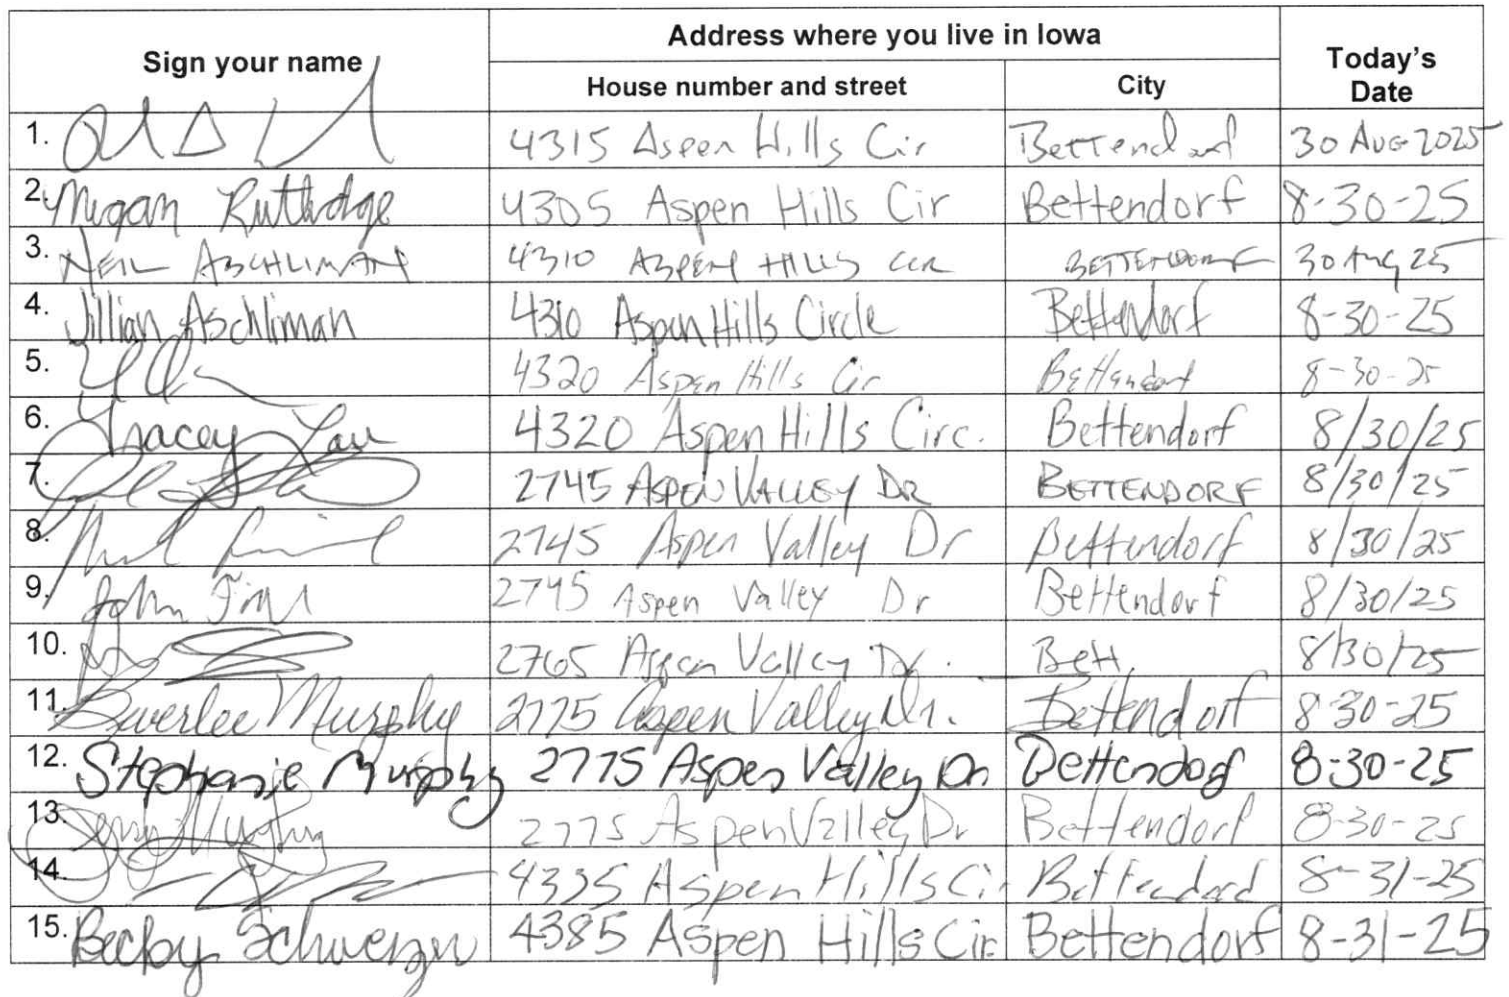 Sign your name
Address where you live in Iowa
Today's Date
House number and street City
1. 4315 Aspen Hills Cir Bettendorf 30 Aug 2025
2. Megan Rutledge 4305 Aspen Hills Cir Bettendorf 8-30-25
3. NEIL ASCHLIMAN 4310 ASPEN HILLS CIR BETTENDORF 30 Aug 25
4. Jillian Aschliman 4310 Aspen Hills Circle Bettendorf 8-30-25
5. 4320 Aspen Hills Cir Bettendorf 8-30-25
6. Tracey Law 4320 Aspen Hills Circ. Bettendorf 8/30/25
7. 2745 ASPEN VALLEY DR BETTENDORF 8/30/25
8. 2745 Aspen Valley Dr Bettendorf 8/30/25
9. John 2745 Aspen Valley Dr Bettendorf 8/30/25
10. 2765 Aspen Valley Dr. Bett. 8/30/25
11. Beverlee Murphy 2775 Aspen Valley Dr. Bettendorf 8-30-25
12. Stephanie Murphy 2775 Aspen Valley Dr Bettendorf 8-30-25
13. 2775 Aspen Valley Dr Bettendorf 8-30-25
14. Aspen Hills Cir Bettendorf 8-31-25
15. Becky 4385 Aspen Hills Cir Bettendorf 8-31-25